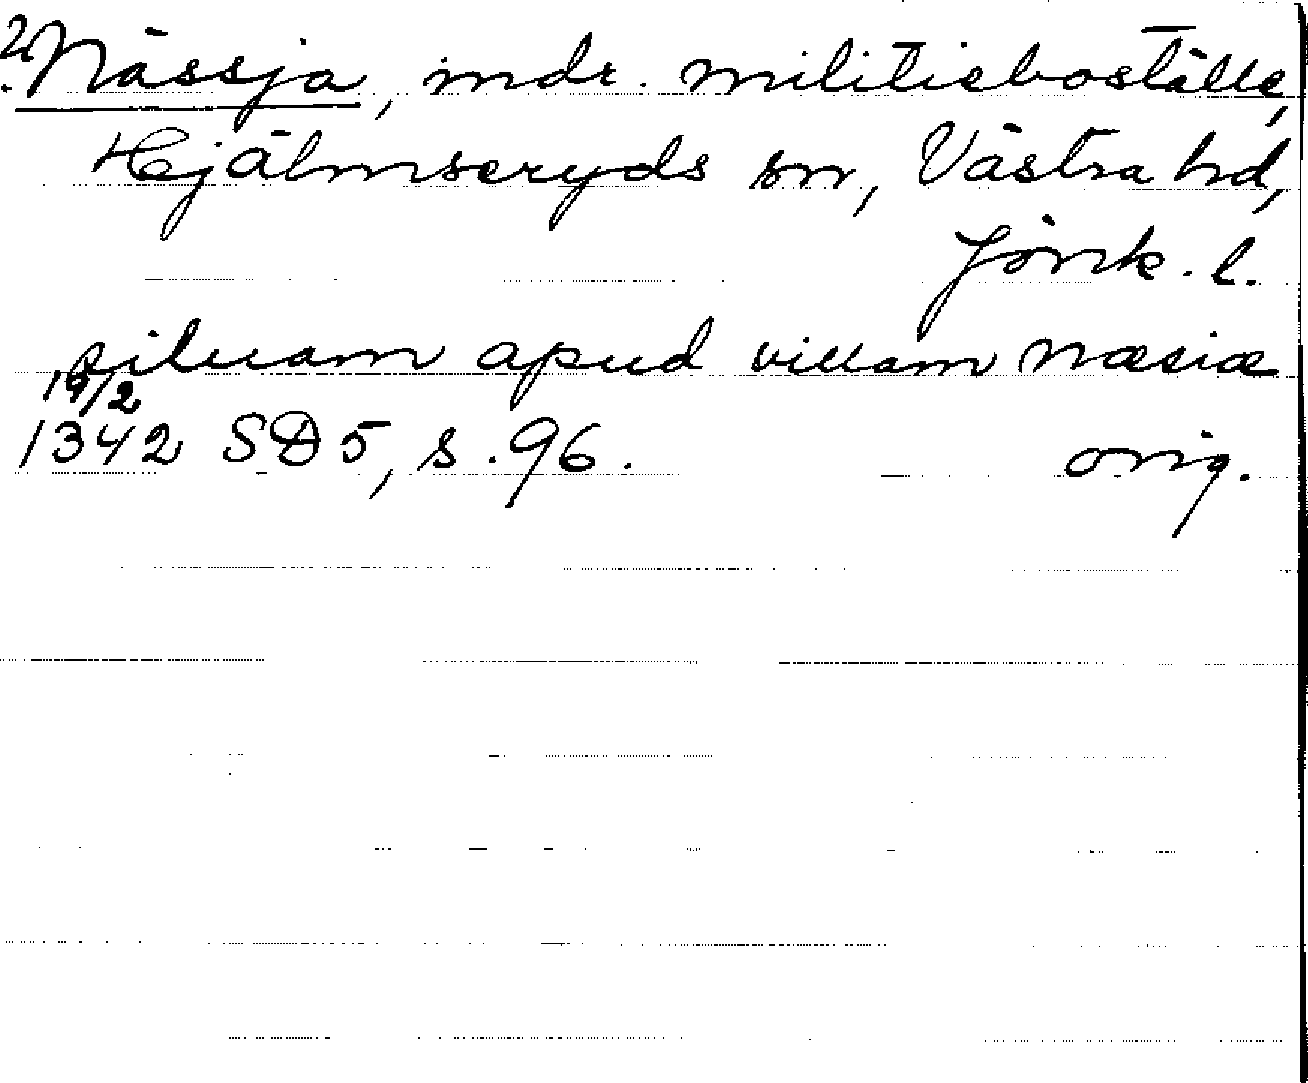 2. Nässja, mdr. militieboställe,
Hjälmseryds sn, Västra hd,
Jönk. l.
siluam apud villam næsiæ
19/2
1342 SD 5, s. 96. orig.